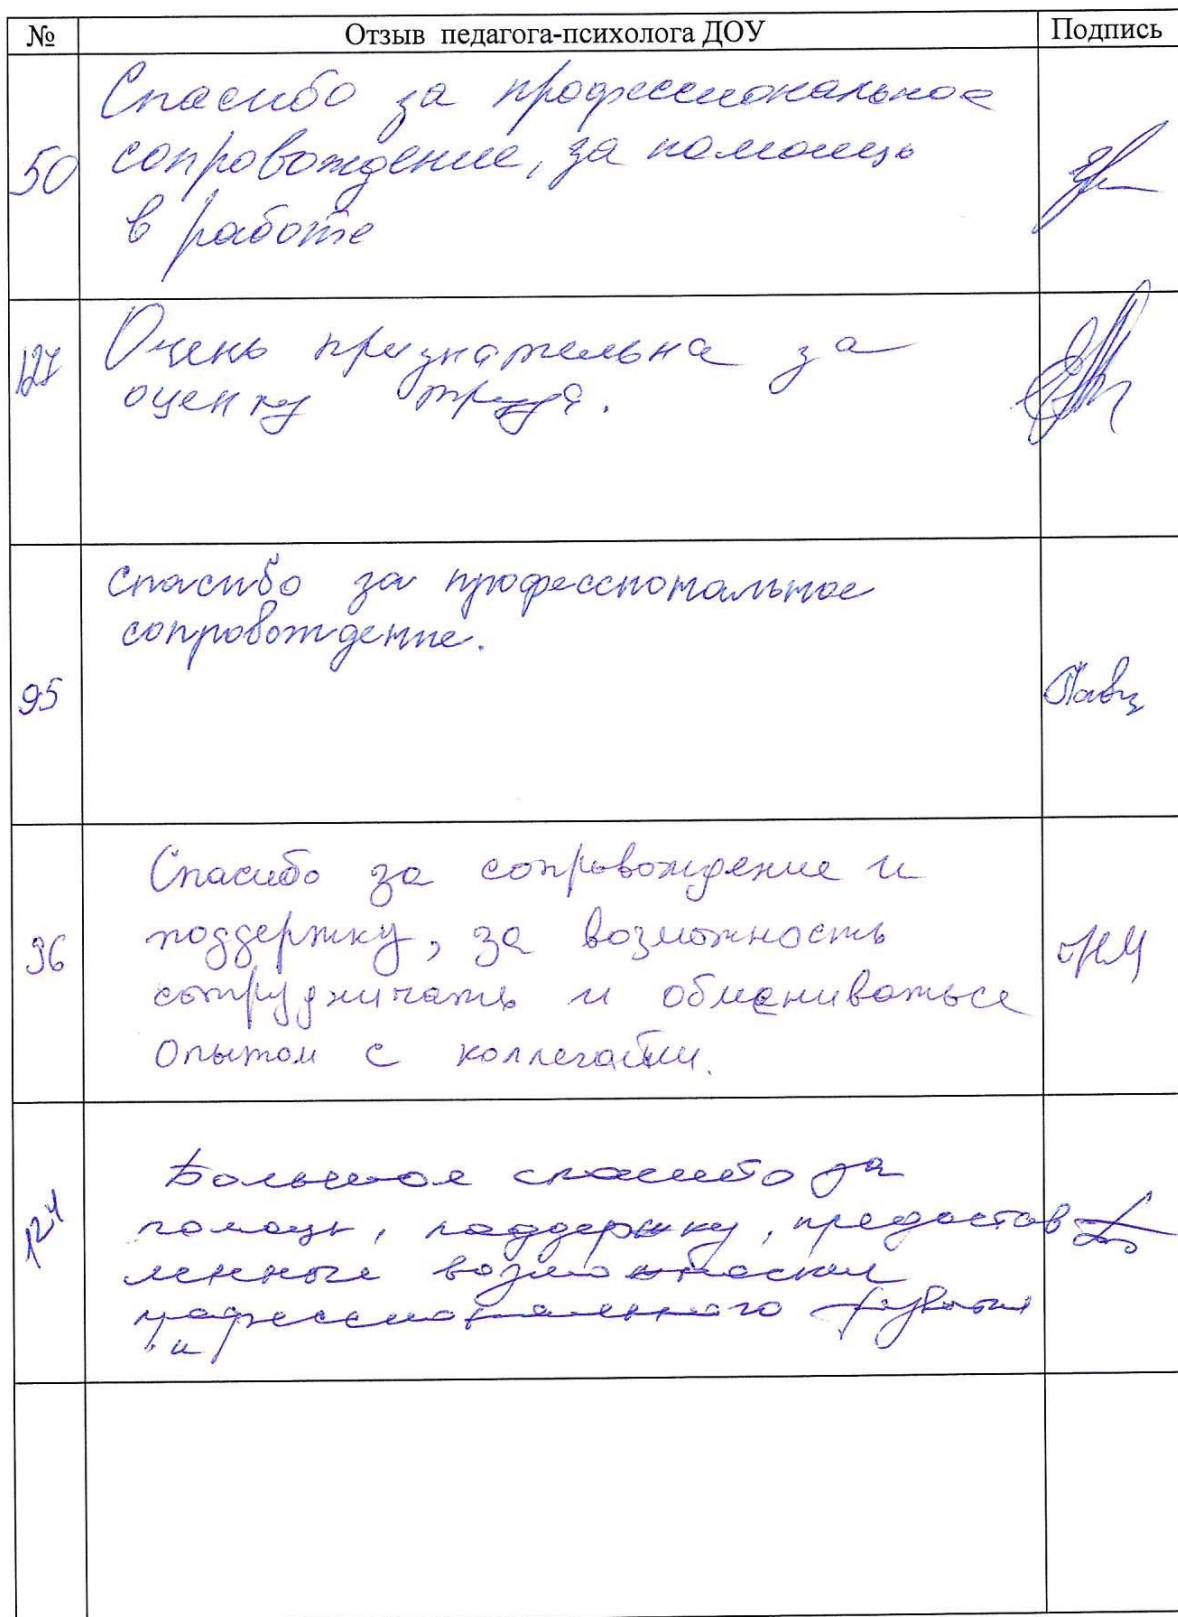 № Отзыв педагога-психолога ДОУ Подпись
Спасибо за профессиональное
50 сопровождение, за помощь
в работе
127 Очень признательна за
оценку труда.
спасибо за профессиональное
сопровождение.
95
Спасибо за сопровождение и
96 поддержку, за возможность
сотрудничать и обмениваться
опытом с коллегами.
Большое спасибо за
124 помощь, поддержку, предостав
ленные возможности
профессионального